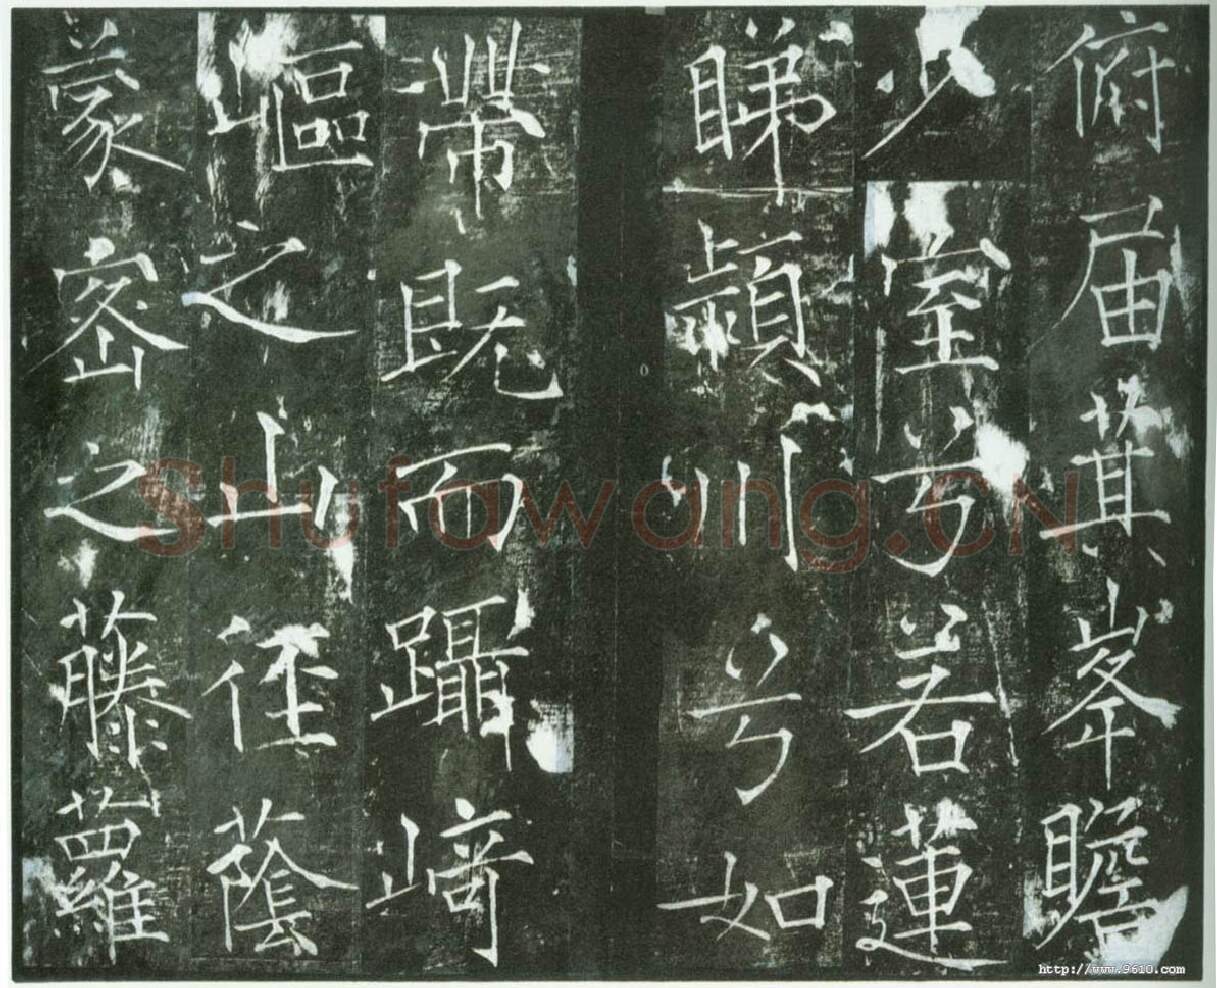 俯届萁峯瞻
少室兮若蓮
睇潁川兮如
帶既而躡崎
嶇之山徑蔭
蒙密之藤蘿
Shufawang.CN
http://www.9610.com